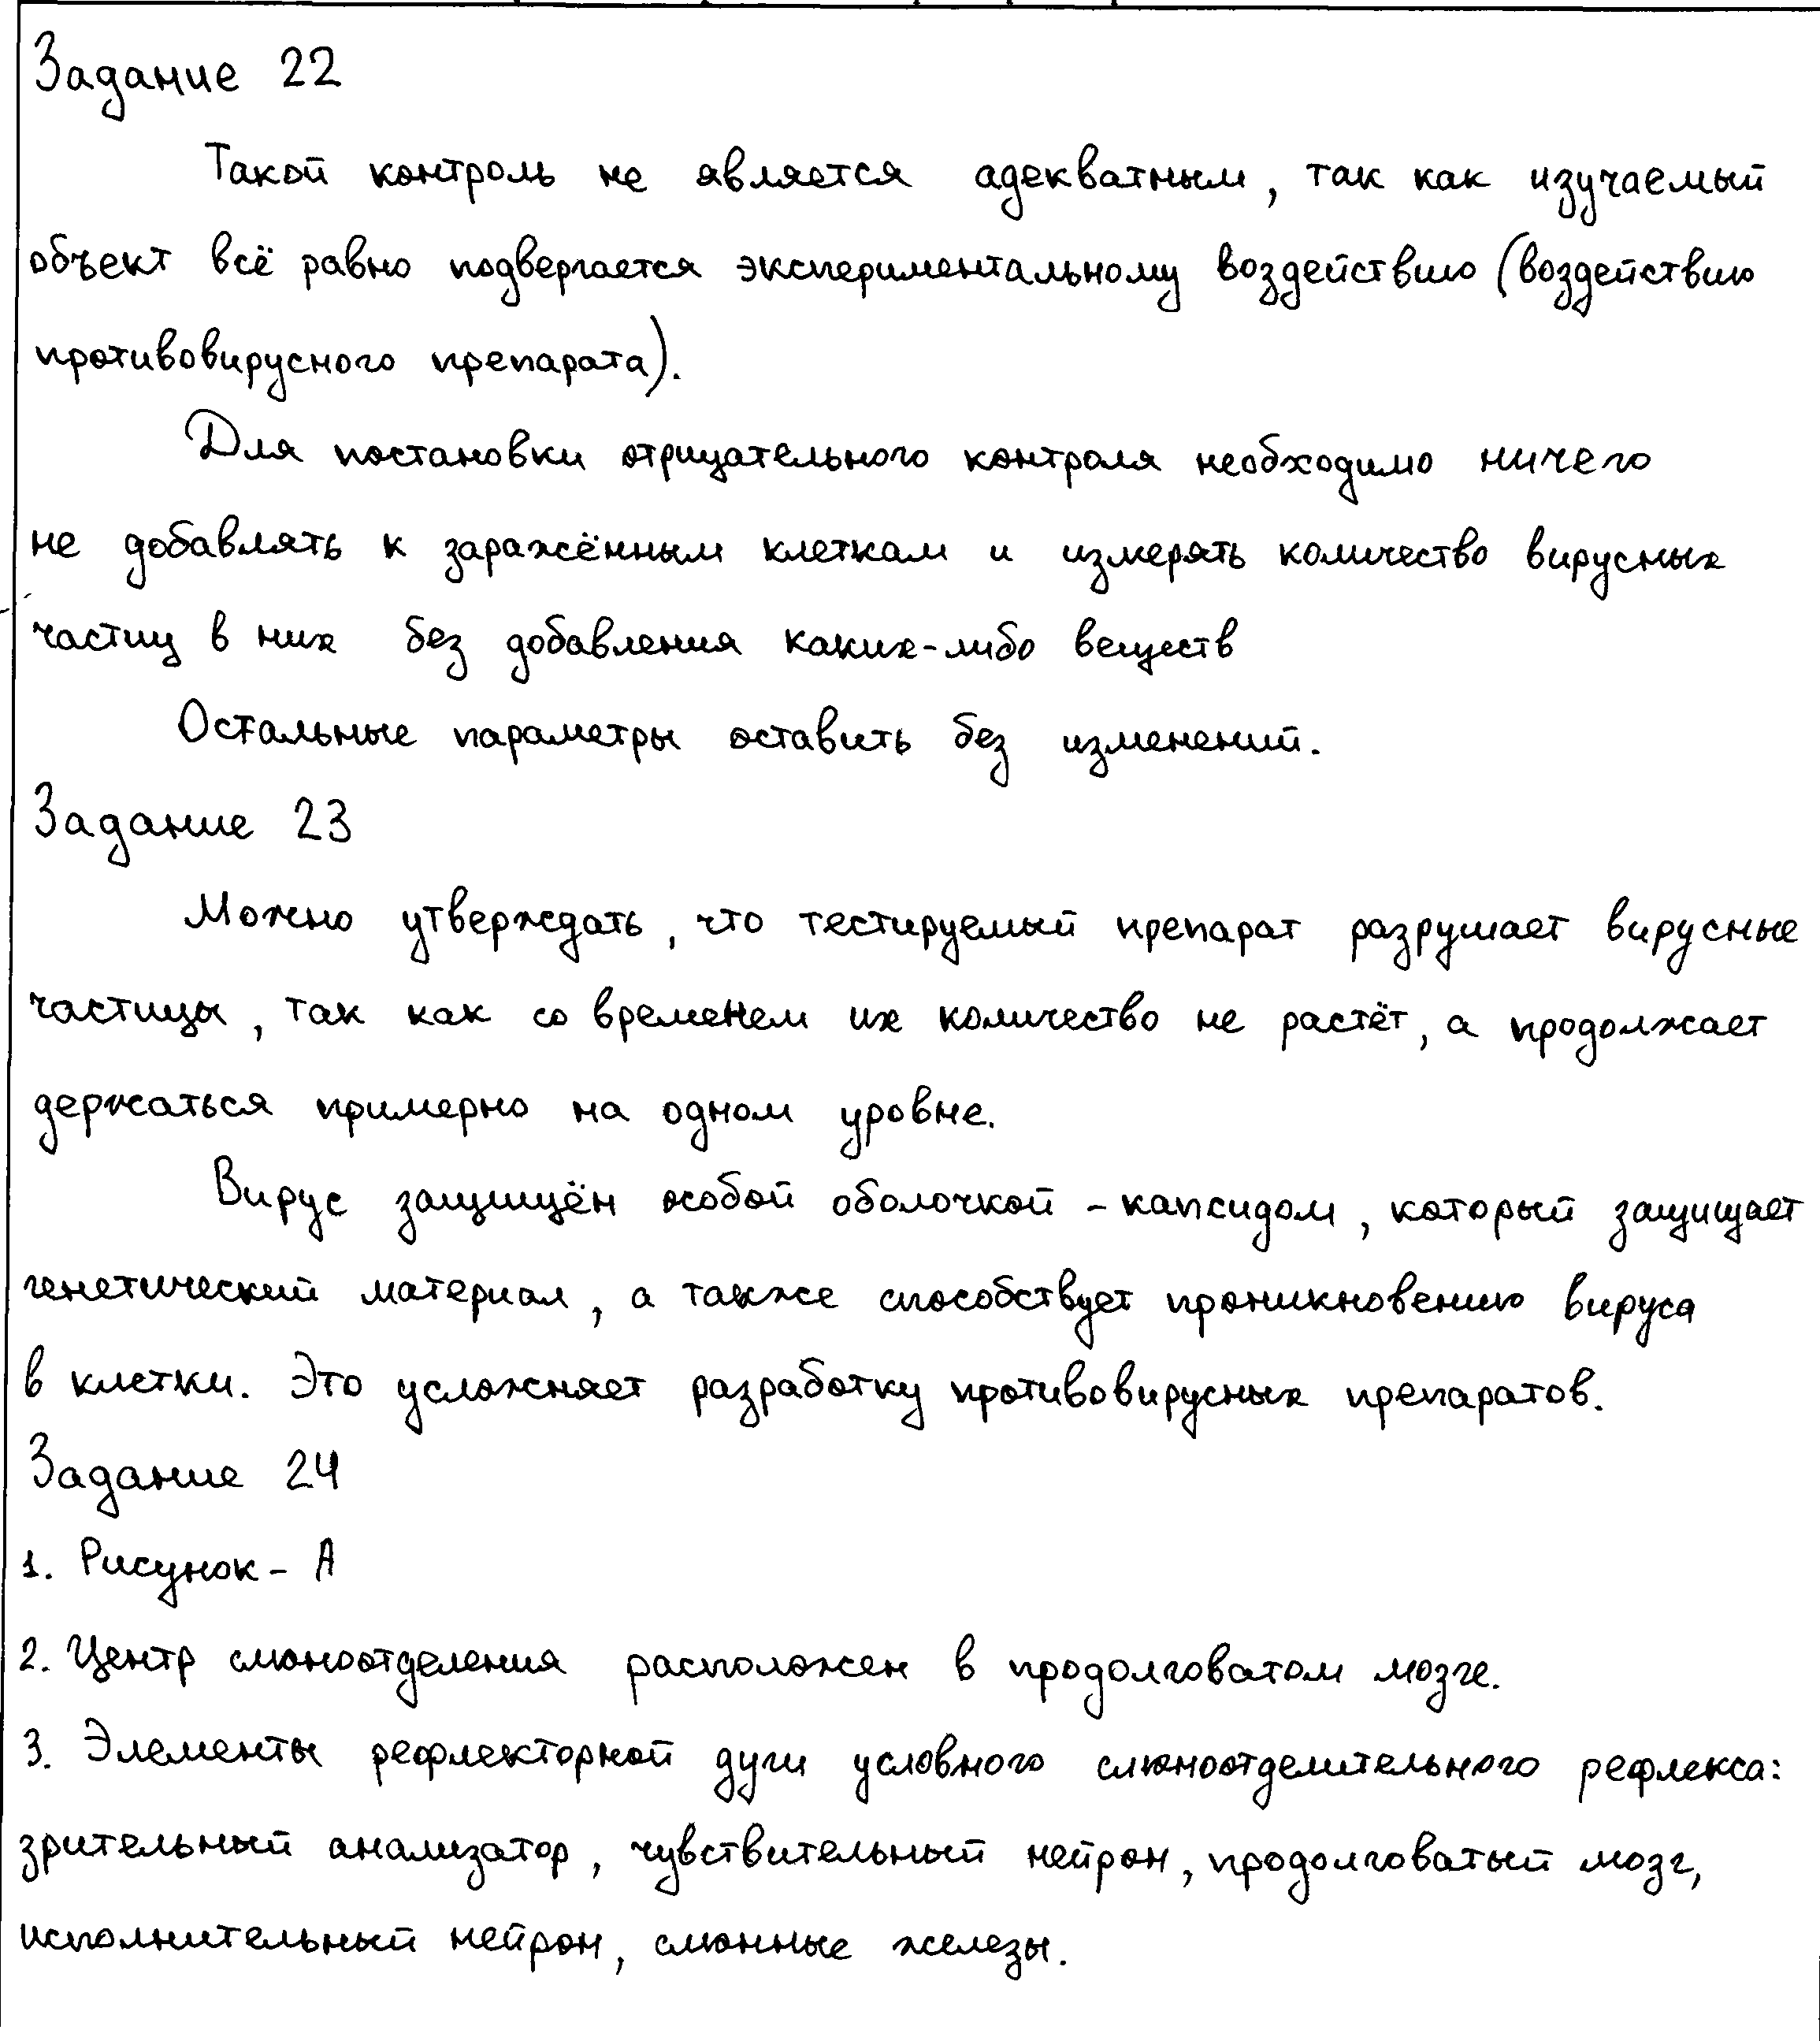 Задание 22
Такой контроль не является адекватным, так как изучаемый
объект всё равно подвергается экспериментальному воздействию (воздействию
противовирусного препарата).
Для постановки отрицательного контроля необходимо ничего
не добавлять к заражённым клеткам и измерять количество вирусных
частиц в них без добавления каких-либо веществ
Остальные параметры оставить без изменений.
Задание 23
Можно утверждать, что тестируемый препарат разрушает вирусные
частицы, так как со временем их количество не растёт, а продолжает
держаться примерно на одном уровне.
Вирус защищён особой оболочкой - капсидом, который защищает
генетический материал, а также способствует проникновению вируса
в клетки. Это усложняет разработку противовирусных препаратов.
Задание 24
1. Рисунок - А
2. Центр слюноотделения расположен в продолговатом мозге.
3. Элементы рефлекторной дуги условного слюноотделительного рефлекса:
зрительный анализатор, чувствительный нейрон, продолговатый мозг,
исполнительный нейрон, слюнные железы.